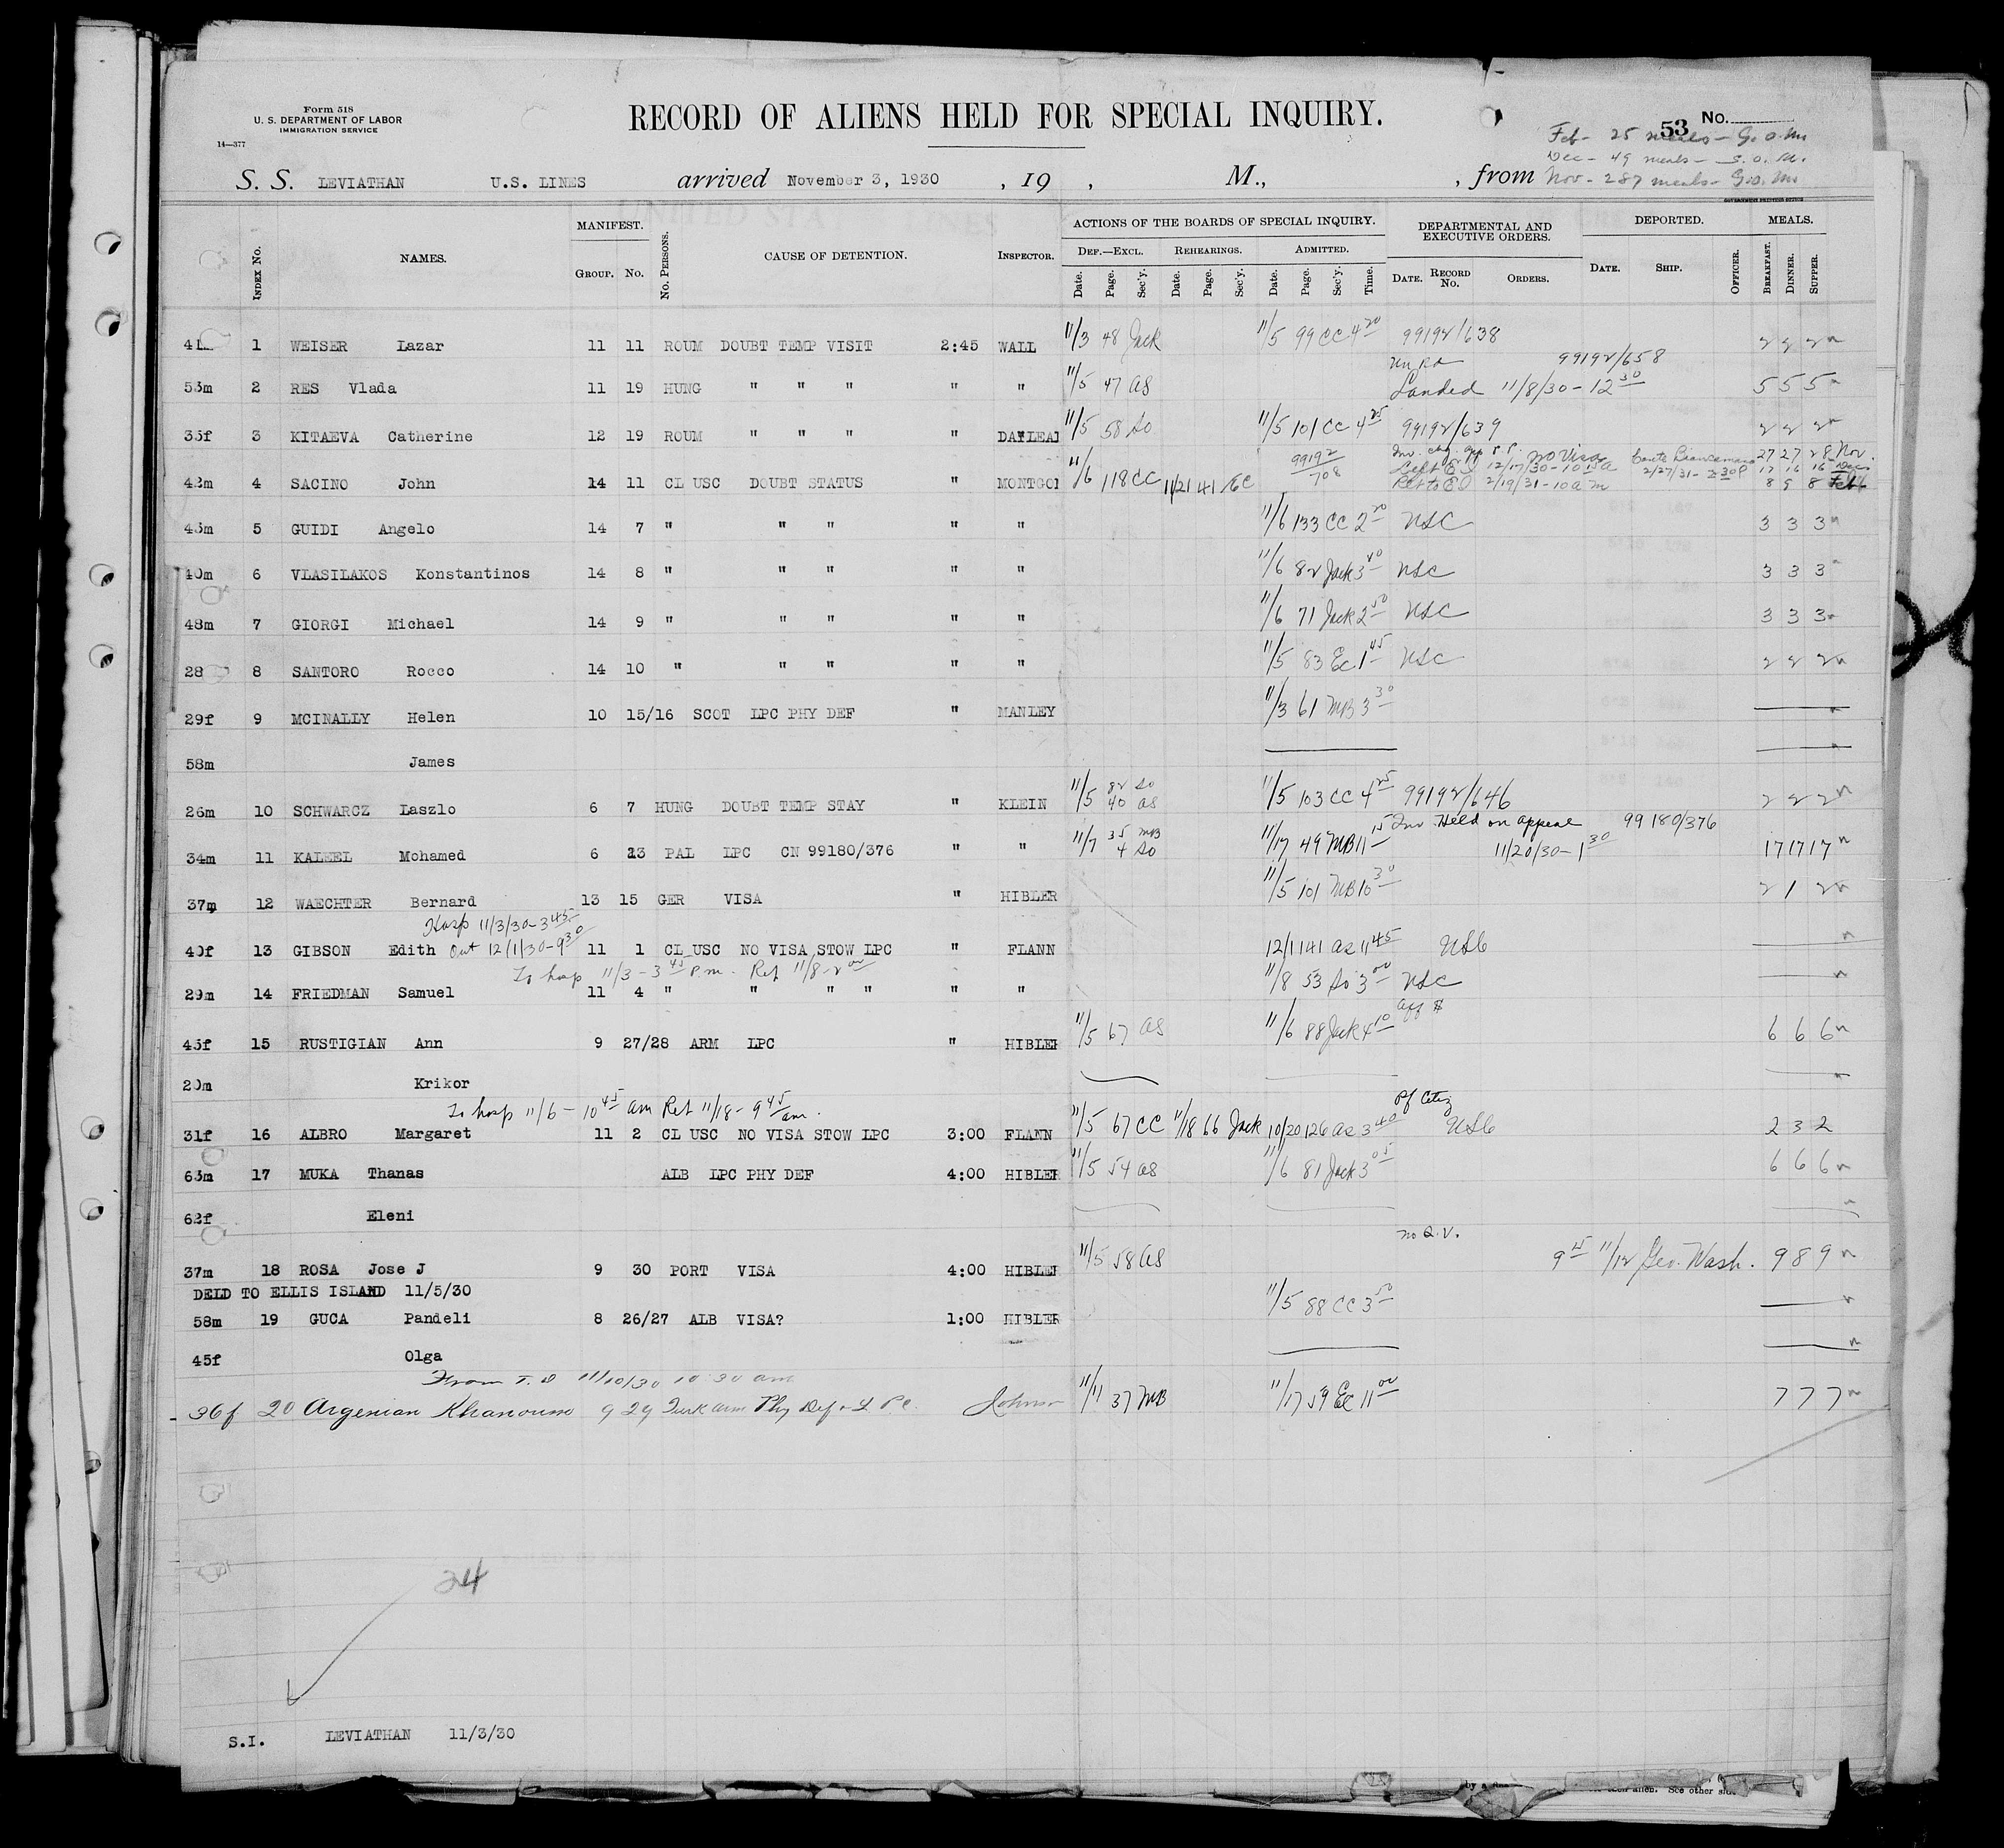 Form 518
U. S. DEPARTMENT OF LABOR
IMMIGRATION SERVICE
14—377
RECORD OF ALIENS HELD FOR SPECIAL INQUIRY.
53 No.
Feb - 25 meals - G.O.M.
Dec - 49 meals - G.O.M.
Nov - 287 meals - G.O.M.
S. S. LEVIATHAN U.S. LINES arrived November 3, 1930 , 19 , M., , from
GOVERNMENT PRINTING OFFICE
Index No. NAMES. MANIFEST. Group. No. No. Persons. CAUSE OF DETENTION. Inspector. ACTIONS OF THE BOARDS OF SPECIAL INQUIRY. DEPARTMENTAL AND EXECUTIVE ORDERS. DEPORTED. MEALS.
Def.—Excl. Rehearings. Admitted.
Date. Page. Sec'y. Date. Page. Sec'y. Date. Page. Sec'y. Time. Date. Record No. Orders. Date. Ship. Officer. Breakfast. Dinner. Supper.
1 WEISER Lazar 11 11 ROUM DOUBT TEMP VISIT 2:45 WALL 11/3 48 Jack 11/5 99 CC 4 20 99192/638 2 2 2
99192/658
53m 2 RES Vlada 11 19 HUNG " " " " " 11/5 47 AS Landed 11/8/30 - 12 30 5 5 5
35f 3 KITAEVA Catherine 12 19 ROUM " " " " 11/5 58 So 11/5 101 CC 4 25 99192/639 2 2 2
99192/708 No Visa 27 27 28 Nov.
Left E I 12/17/30 - 10 15 a 2/27/31 - 17 16 16 Dec
42m 4 SACINO John 14 11 CL USC DOUBT STATUS " MONTGO 11/6 118 CC 11/21 41 EC Ret to E I 2/19/31 - 10 a m 8 9 8 Feb
43m 5 GUIDI Angelo 14 7 " " " " " 11/6 133 CC 2 20 USC 3 3 3
40m 6 VLASILAKOS Konstantinos 14 8 " " " " " 11/6 82 Jack 3 40 USC 3 3 3
48m 7 GIORGI Michael 14 9 " " " " " 11/6 71 Jack 2 50 USC 3 3 3
28 8 SANTORO Rocco 14 10 " " " " " 11/5 83 EC 1 45 USC 2 2 2
29f 9 MCINALLY Helen 10 15/16 SCOT LPC PHY DEF " MANLEY 11/3 61 MB 3 30
58m James
26m 10 SCHWARCZ Laszlo 6 7 HUNG DOUBT TEMP STAY " KLEIN 11/5 82 So 40 AS 11/5 103 CC 4 25 99192/646 2 2 2
Held on appeal 99180/376
34m 11 KALEEL Mohamed 6 23 PAL LPC CN 99180/376 " " 11/7 35 MB 4 So 11/17 49 MB 11 15 11/20/30 - 1 30 17 17 17
37m 12 WAECHTER Bernard 13 15 GER VISA " HIBLER 11/5 101 MB 10 30 2 1 2
Hosp 11/3/30 - 3 45
40f 13 GIBSON Edith Out 12/1/30 - 9 30 11 1 CL USC NO VISA STOW LPC " FLANN 12/1 141 AS 11 45 USC
To hosp 11/3 - 3 45 P.m. Ret 11/8 - 2 00
29m 14 FRIEDMAN Samuel 11 4 " " " " " " 11/8 53 So 3 00 USC
45f 15 RUSTIGIAN Ann 9 27/28 ARM LPC " HIBLER 11/5 67 AS 11/6 88 Jack 4 10 6 6 6
20m Krikor
To hosp 11/6 - 10 45 am Ret 11/18 - 9 45 am.
31f 16 ALBRO Margaret 11 2 CL USC NO VISA STOW LPC 3:00 FLANN 11/5 67 CC 11/18 66 Jack 10/20 126 AS 3 40 USC 2 3 2
63m 17 MUKA Thanas ALB LPC PHY DEF 4:00 HIBLER 11/5 54 AS 11/6 81 Jack 3 05 6 6 6
62f Eleni
no Q.V.
37m 18 ROSA Jose J 9 30 PORT VISA 4:00 HIBLER 11/5 58 AS 9 45 11/12 Geo. Wash. 9 8 9
DELD TO ELLIS ISLAND 11/5/30
58m 19 GUCA Pandeli 8 26/27 ALB VISA? 1:00 HIBLER 11/5 88 CC 3 50
45f Olga
From T.D 11/10/30 10 30 am
36f 20 Argenian Khanoum 9 29 Turk Arm Phy Def + L Pc. Johnson 11/11 37 MB 11/17 59 EC 11 00 7 7 7
24
S.I. LEVIATHAN 11/3/30
alien. See other